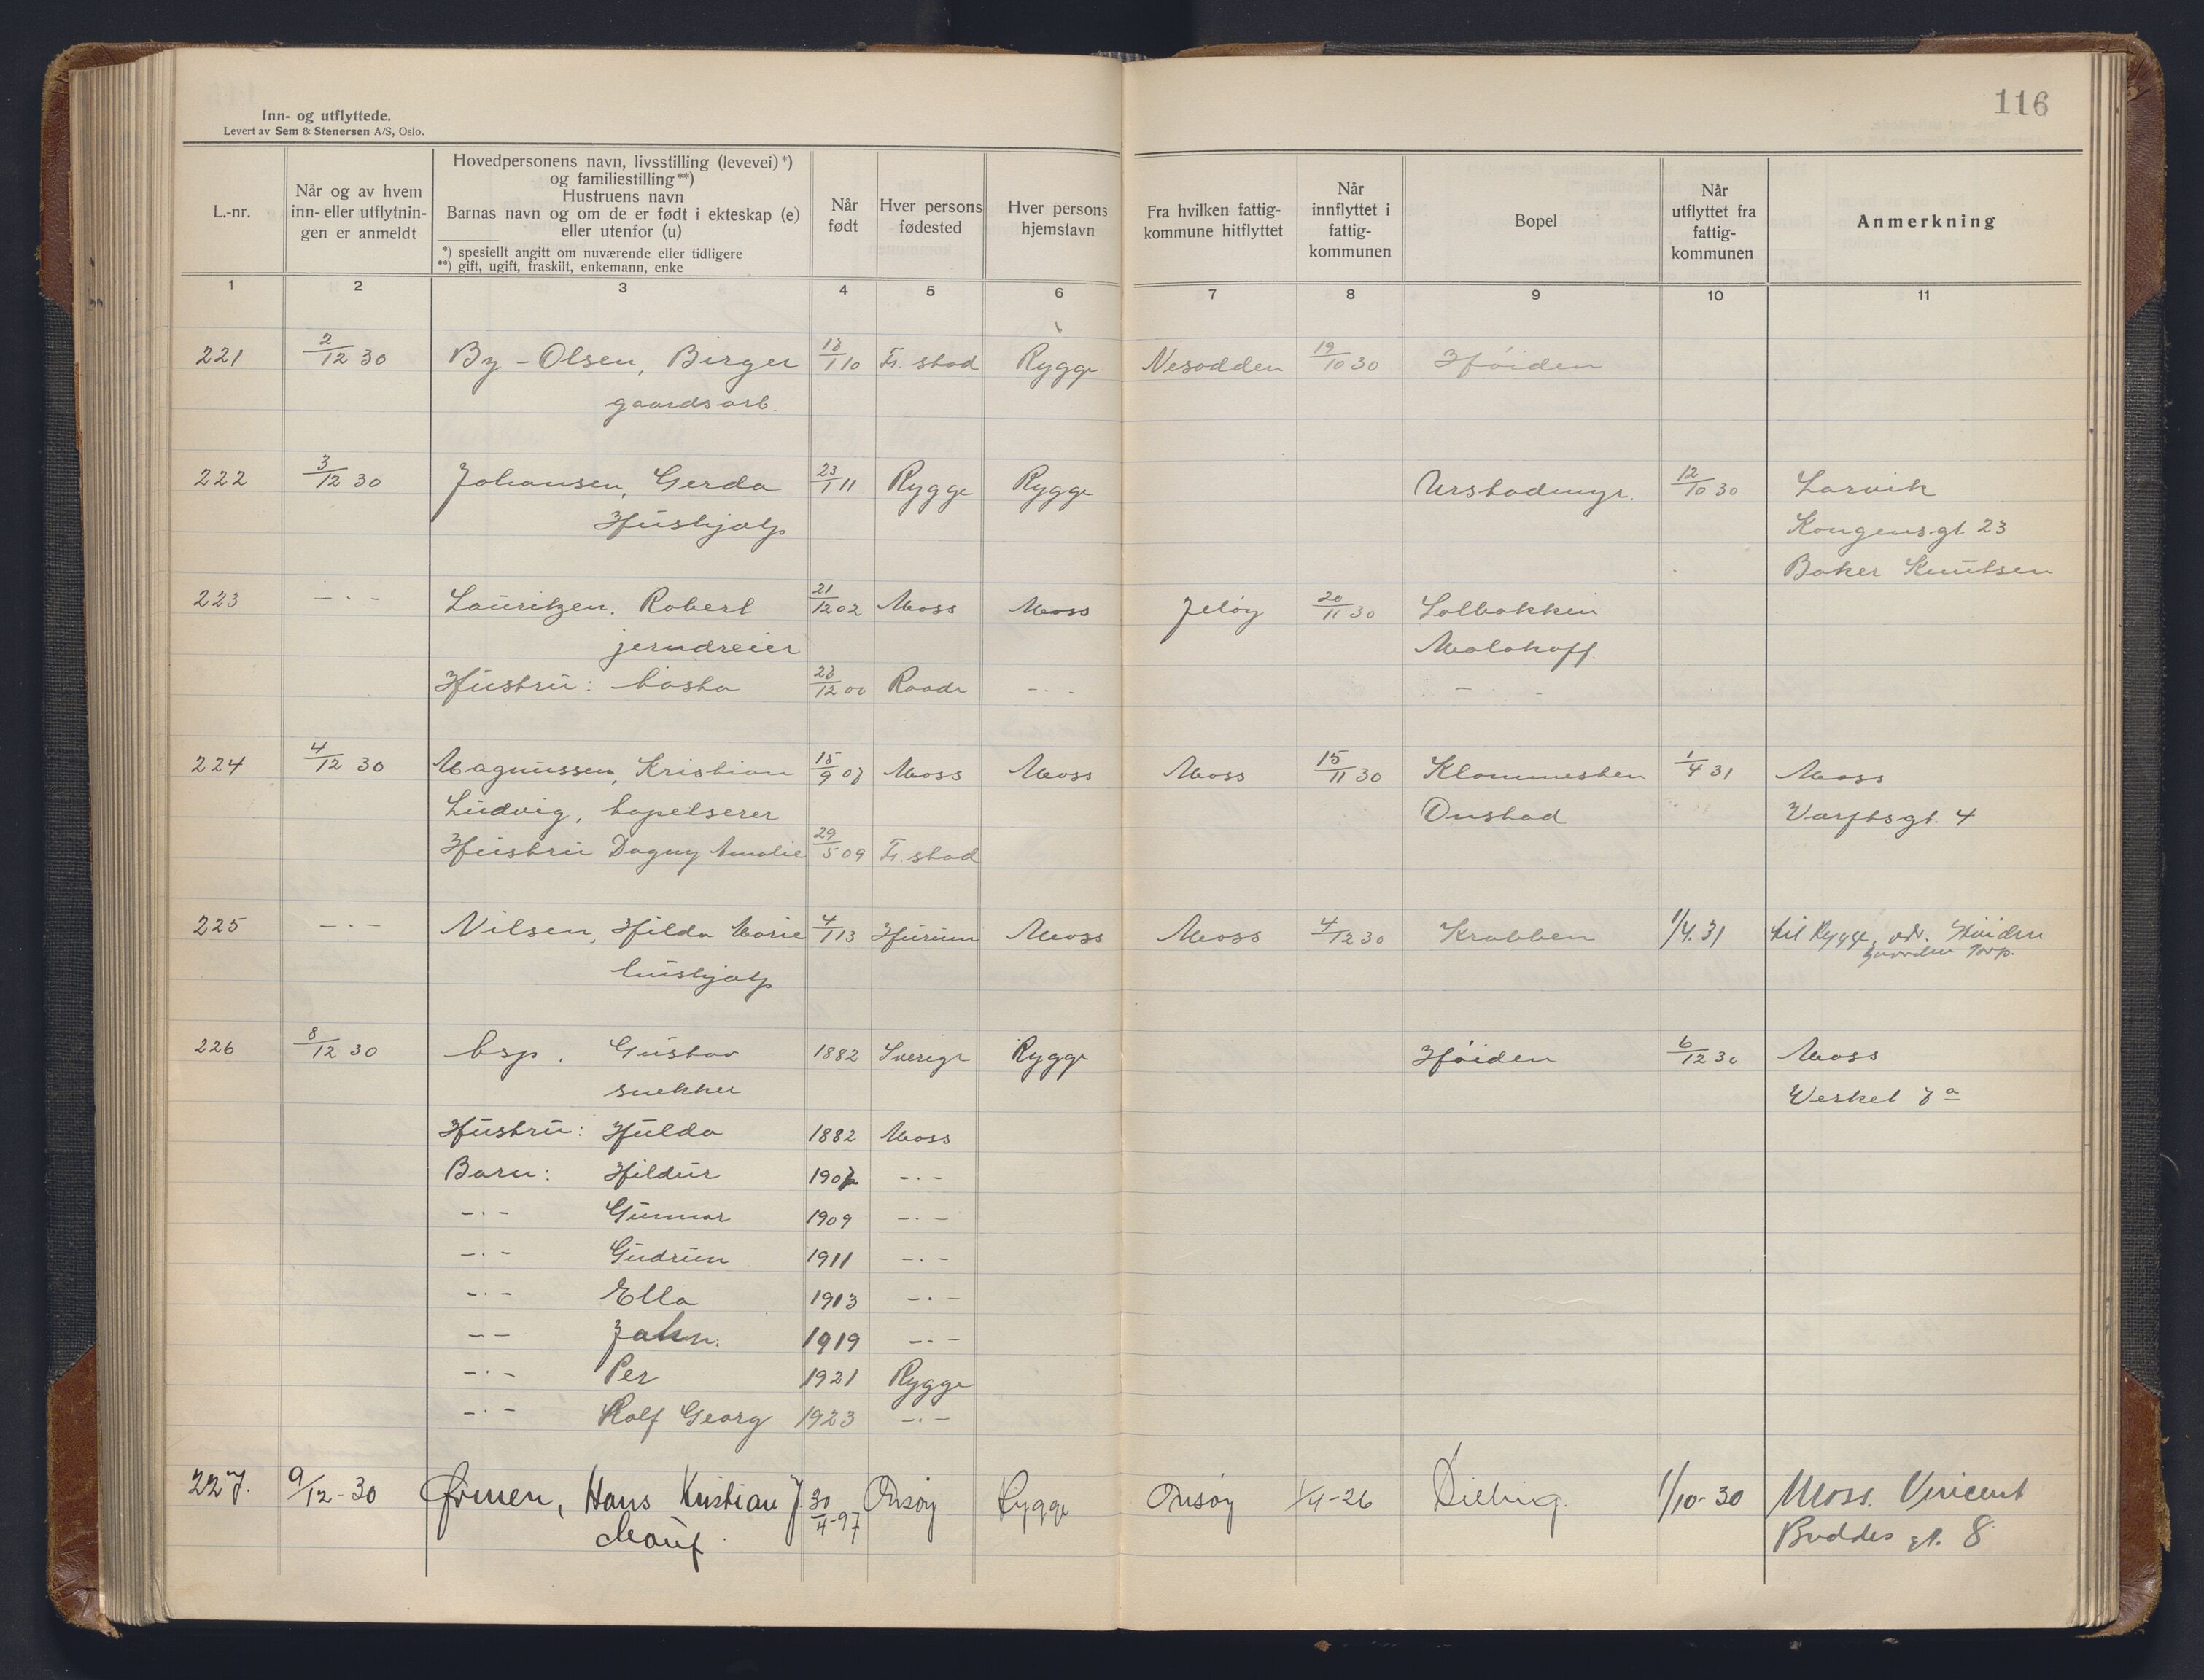 116
Inn- og utflyttede.
Levert av Sem & Stenersen A/S, Oslo.
L.-nr.
Når og av hvem
inn- eller utflytnin-
gen er anmeldt
Hovedpersonens navn, livsstilling (levevei)*)
og familiestilling**)
Hustruens navn
Barnas navn og om de er født i ekteskap (e)
eller utenfor (u)
*) spesiellt angitt om nuværende eller tidligere
**) gift, ugift, fraskilt, enkemann, enke
Når
født
Hver persons
fødested
Hver persons
hjemstavn
Fra hvilken fattig-
kommune hitflyttet
Når
innflyttet i
fattig-
kommunen
Bopel
Når
utflyttet fra
fattig-
kommunen
Anmerkning
1 2 3 4 5 6 7 8 9 10 11
221 2/12 30 By - Olsen, Birger 18/1 10 Fr. stad Rygge Nesodden 19/10 30 Høiden
gaardsarb.
222 3/12 30 Johansen, Gerda 23/1 11 Rygge Rygge Urstadmyr. 12/10 30 Larvik
Hushjælp Kongensgt 23
Baker Knutsen
223 - . - Lauritzen, Robert 21/12 02 Moss Moss Jeløy 20/11 30 Solbakken
jerndreier Malakoff.
Hustru: Casta 28/12 00 Raade - . - - . -
224 4/12 30 Magnussen, Kristian 15/9 07 Moss Moss Moss 15/11 30 Klommesten 1/4 31 Moss
Ludvig, tapetserer Onstad Varftsgt. 4
Hustru Dagny Amalie 29/5 09 Fr. stad
225 - . - Nilsen, Hilda Marie 4/1 13 Hurum Moss Moss 4/12 30 Krabben 1/4.31 til Rygge, adr. Høiden
hushjælp gaarden Torp.
226 8/12 30 Esp. Gustav 1882 Sverige Rygge Høiden 6/12 30 Moss
snekker Verket 7a
Hustru: Hulda 1882 Moss
Barn: Hildur 1907 - . -
- . - Gunnar 1909 - . -
- . - Gudrun 1911 - . -
- . - Ella 1913 - . -
- - John. 1919 - . -
- . - Per 1921 Rygge
- . - Rolf Georg 1923 - . -
227. 9/12-30 Hans Kristian J. 30/4-97 Onsøy Rygge Onsøy 1/4-26 Dilling. 1/10-30 Moss. Vincent
chauf. Buddes gt. 8